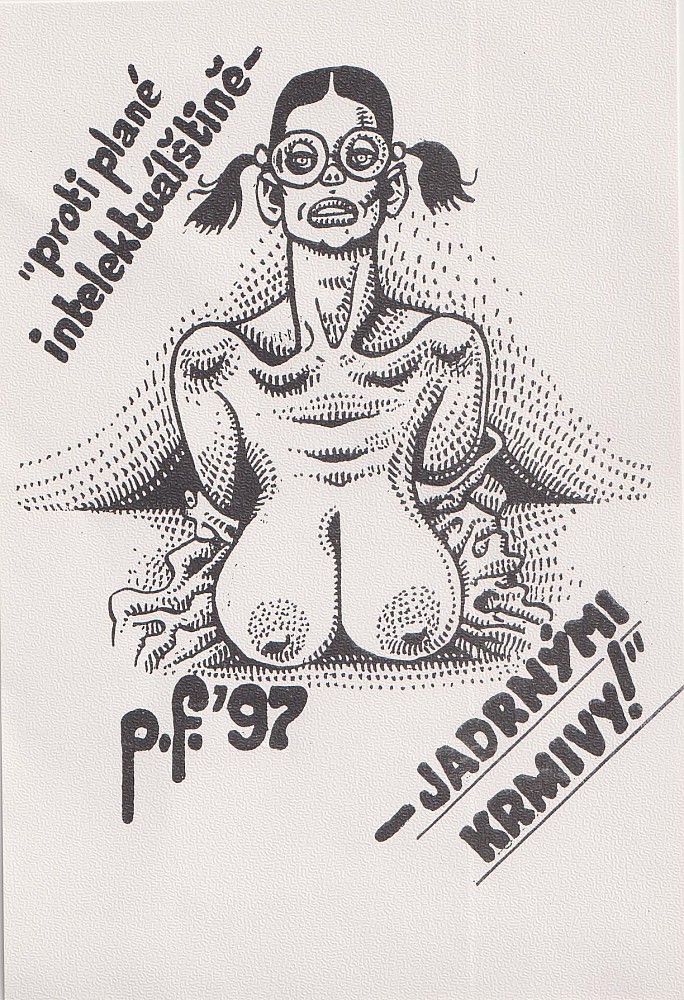 "proti plané
intelektuálštině-
p.f.'97
- JADRNÝMI
KRMIVY!"